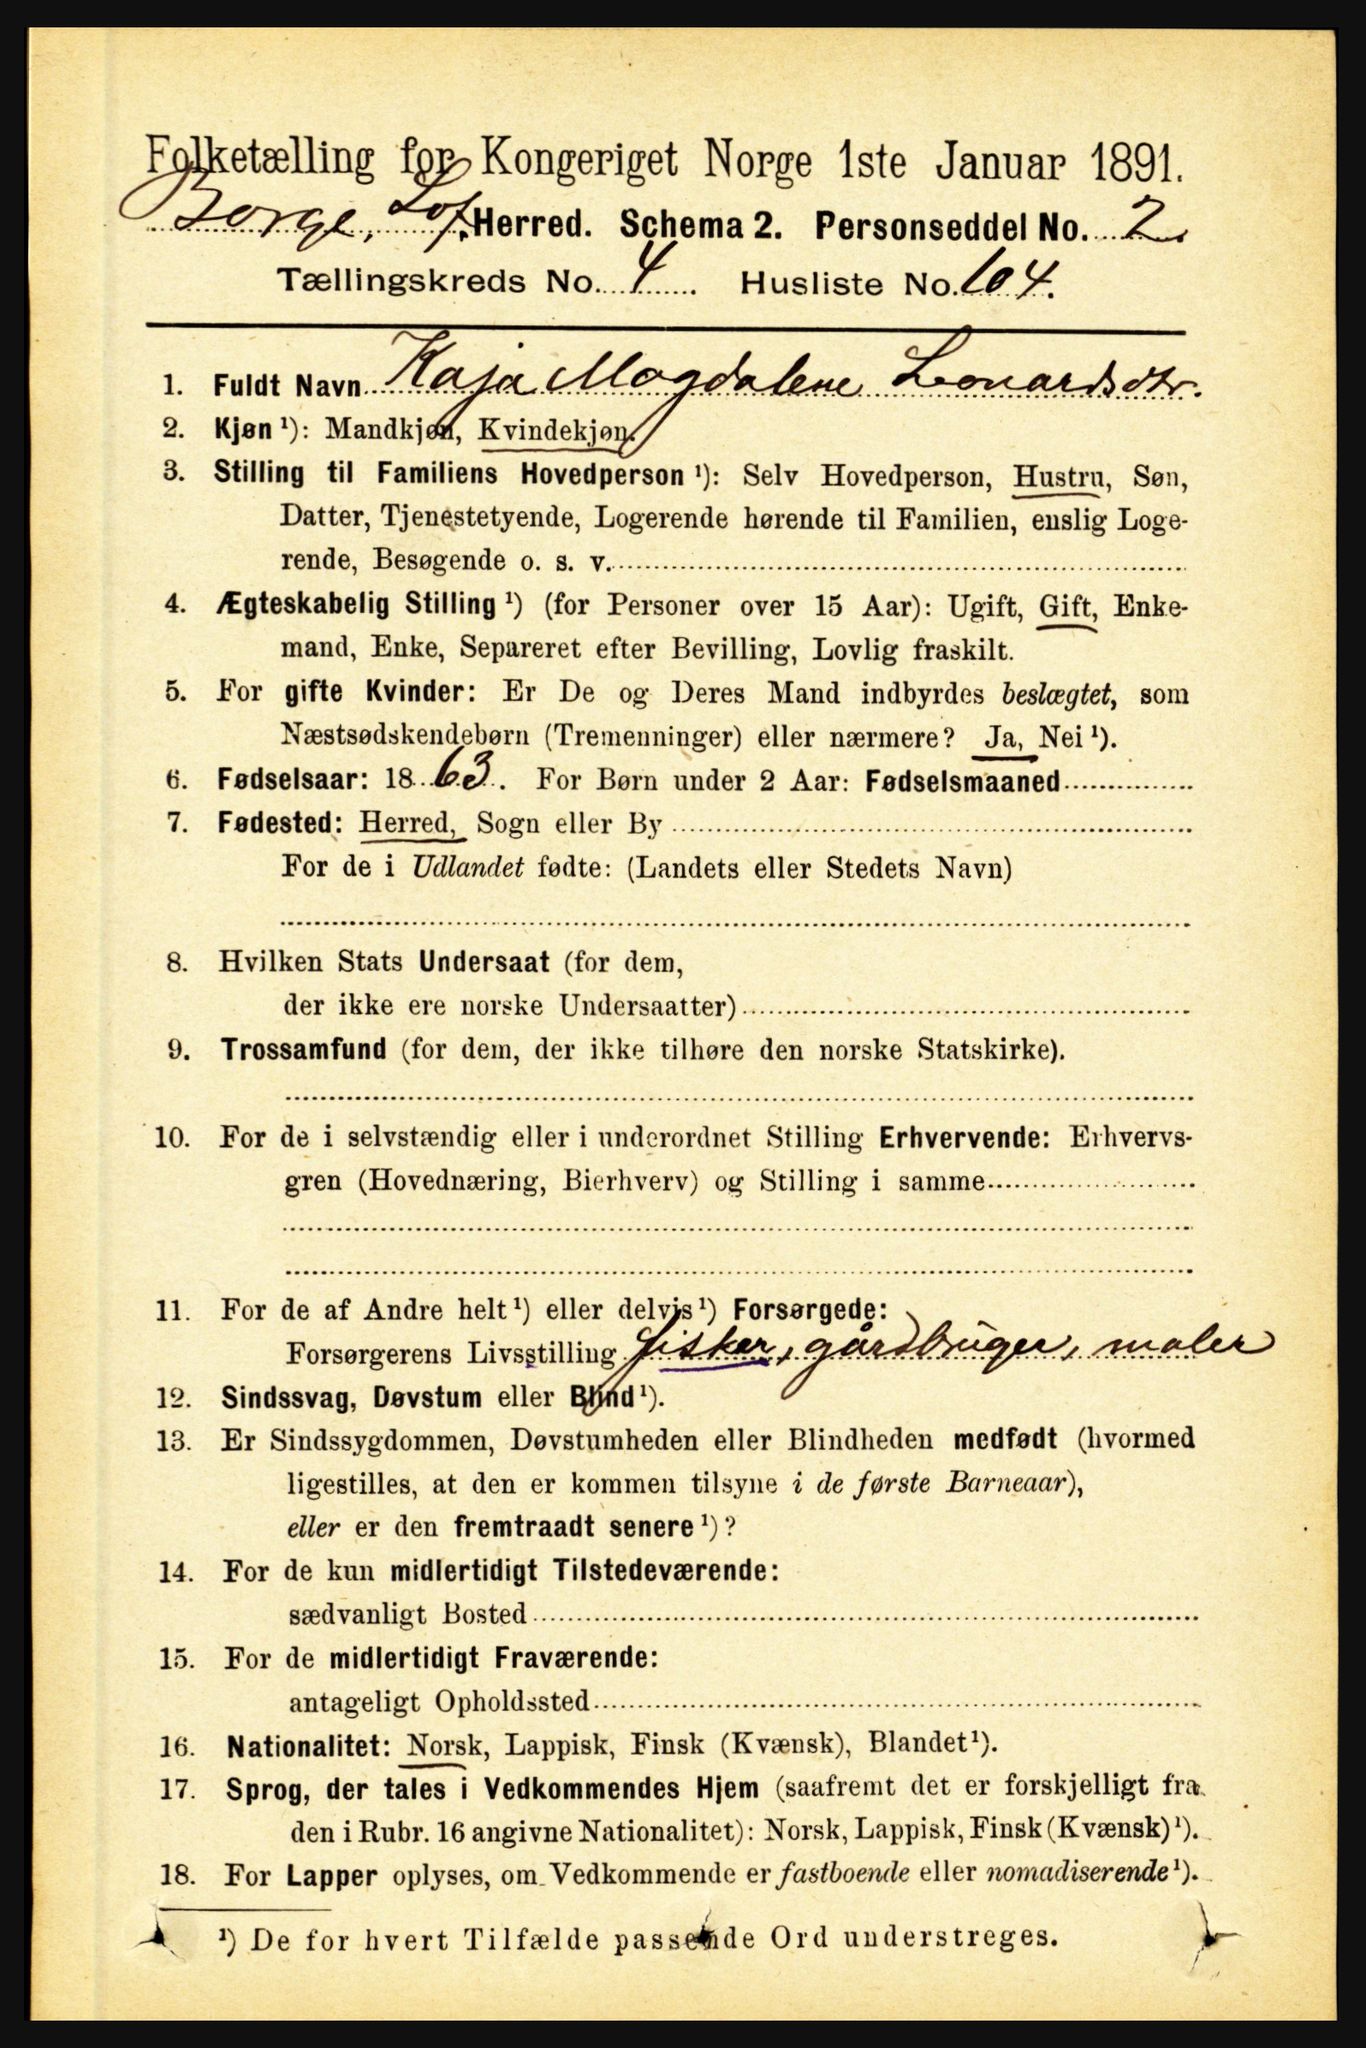 Folketælling for Kongeriget Norge 1ste Januar 1891.
Borge, Lof. Herred. Schema 2. Personseddel No. 2.
Tællingskreds No. 4. Husliste No. 104.
1. Fuldt Navn Kaja Magdalene Leonardsdtr.
2. Kjøn ¹): Mandkjøn, Kvindekjøn.
3. Stilling til Familiens Hovedperson ¹): Selv Hovedperson, Hustru, Søn,
Datter, Tjenestetyende, Logerende hørende til Familien, enslig Loge-
rende, Besøgende o. s. v.
4. Ægteskabelig Stilling ¹) (for Personer over 15 Aar): Ugift, Gift, Enke-
mand, Enke, Separeret efter Bevilling, Lovlig fraskilt.
5. For gifte Kvinder: Er De og Deres Mand indbyrdes beslægtet, som
Næstsødskendebørn (Tremenninger) eller nærmere? Ja, Nei ¹).
6. Fødselsaar: 1863. For Børn under 2 Aar: Fødselsmaaned
7. Fødested: Herred, Sogn eller By
For de i Udlandet fødte: (Landets eller Stedets Navn)
8. Hvilken Stats Undersaat (for dem,
der ikke ere norske Undersaatter)
9. Trossamfund (for dem, der ikke tilhøre den norske Statskirke).
10. For de i selvstændig eller i underordnet Stilling Erhvervende: Erhvervs-
gren (Hovednæring, Bierhverv) og Stilling i samme
11. For de af Andre helt ¹) eller delvis ¹) Forsørgede:
Forsørgerens Livsstilling fisker, gårdbruger, maler
12. Sindssvag, Døvstum eller Blind ¹).
13. Er Sindssygdommen, Døvstumheden eller Blindheden medfødt (hvormed
ligestilles, at den er kommen tilsyne i de første Barneaar),
eller er den fremtraadt senere ¹)?
14. For de kun midlertidigt Tilstedeværende:
sædvanligt Bosted
15. For de midlertidigt Fraværende:
antageligt Opholdssted
16. Nationalitet: Norsk, Lappisk, Finsk (Kvænsk), Blandet ¹).
17. Sprog, der tales i Vedkommendes Hjem (saafremt det er forskjelligt fra
den i Rubr. 16 angivne Nationalitet): Norsk, Lappisk, Finsk (Kvænsk) ¹).
18. For Lapper oplyses, om Vedkommende er fastboende eller nomadiserende ¹).
¹) De for hvert Tilfælde passende Ord understreges.